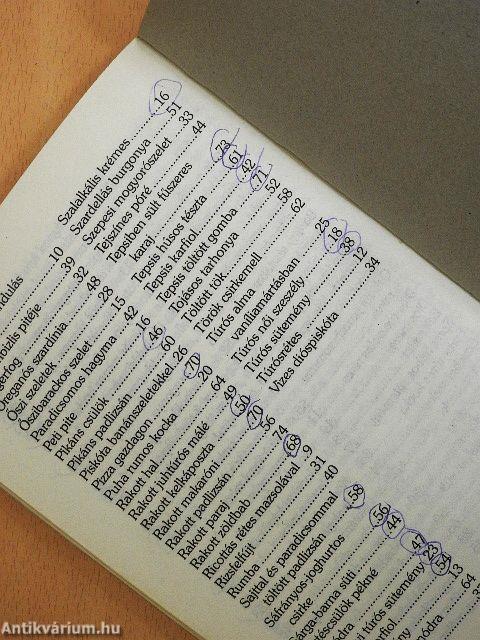 10
pitéje 39
32
Oreganós szardínia 48
Őszi szeletek 28
Őszibarackos szelet 15
Paradicsomos hagyma 42
Peti pite 16
Pikáns csülök 46
Pikáns padlizsán 60
Piskóta banánszeletekkel 26
Pizza gazdagon 70
Puha rumos kocka 20
Rakott hal 64
Rakott juhtúrós málé 49
Rakott kelkáposzta 50
Rakott makaróni 70
Rakott padlizsán 56
Rakott paraj 74
Rakott zöldbab 68
Ricottás rétes mazsolával 9
Rizsfelfújt 31
Rumba 40
Sajttal és paradicsommal
töltött padlizsán 58
Sáfrányos joghurtos
csirke 56
süti 44
47
23
túrós sütemény 54
13
64
Szalalkális krémes 16
Szardellás burgonya 51
Szepesi mogyorószelet 33
Tejszínes póré 44
Tepsiben sült fűszeres
karaj 73
Tepsis húsos tészta 61
Tepsis karfiol 42
Tepsis töltött gomba 71
Tojásos tarhonya 52
Töltött tök 58
Török csirkemell 62
Túrós alma
vaníliamártásban 25
Túrós női szeszély 18
Túrós sütemény
Túrósrétes 12
Vizes dióspiskóta 34
Antikvárium.hu